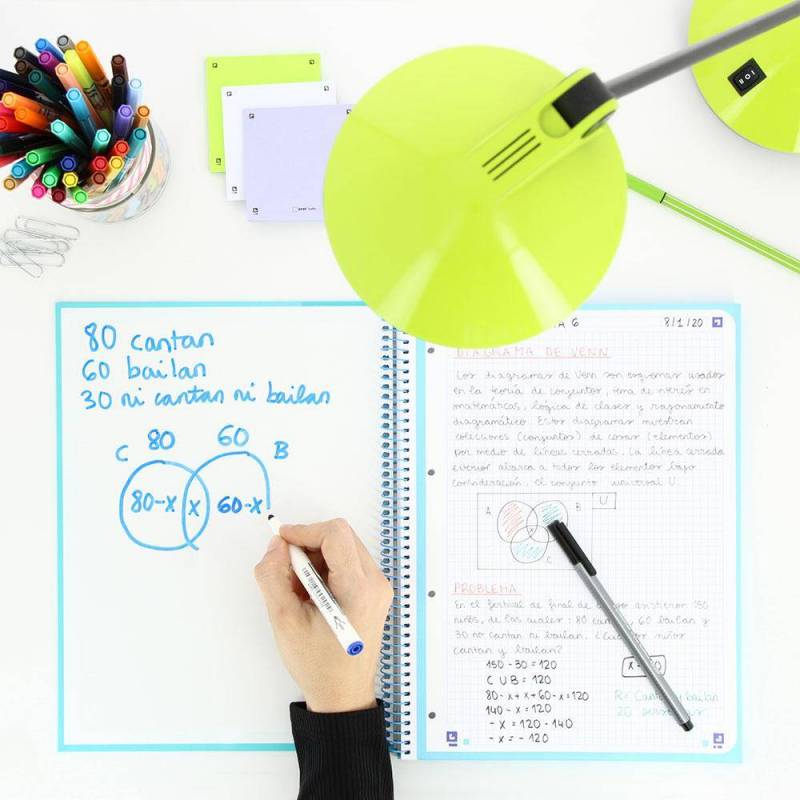 80 cantan
60 bailan
30 ni cantan ni bailan
80 60
C B
80-x x 60-x
6 8/1/20
DIAGRAMA DE VENN
Los diagramas de Venn son esquemas usados
en la teoría de conjuntos, tema de interés en
matemáticas, lógica de clases y razonamiento
diagramático. Estos diagramas muestran
colecciones (conjuntos) de cosas (elementos)
por medio de líneas cerradas. La línea cerrada
exterior abarca a todos los elementos bajo
consideración, el conjunto universal U.
A B U
x
C
PROBLEMA
En el festival de final de asistieron 150
niños, de los cuales: 80 60 bailan y
30 no cantan ni bailan. niños
cantan y bailan?
150 - 30 = 120
C U B = 120
80 - x + x + 60 - x = 120
140 - x = 120
- x = 120 - 140
- x = - 120
R: Cantan y bailan
20